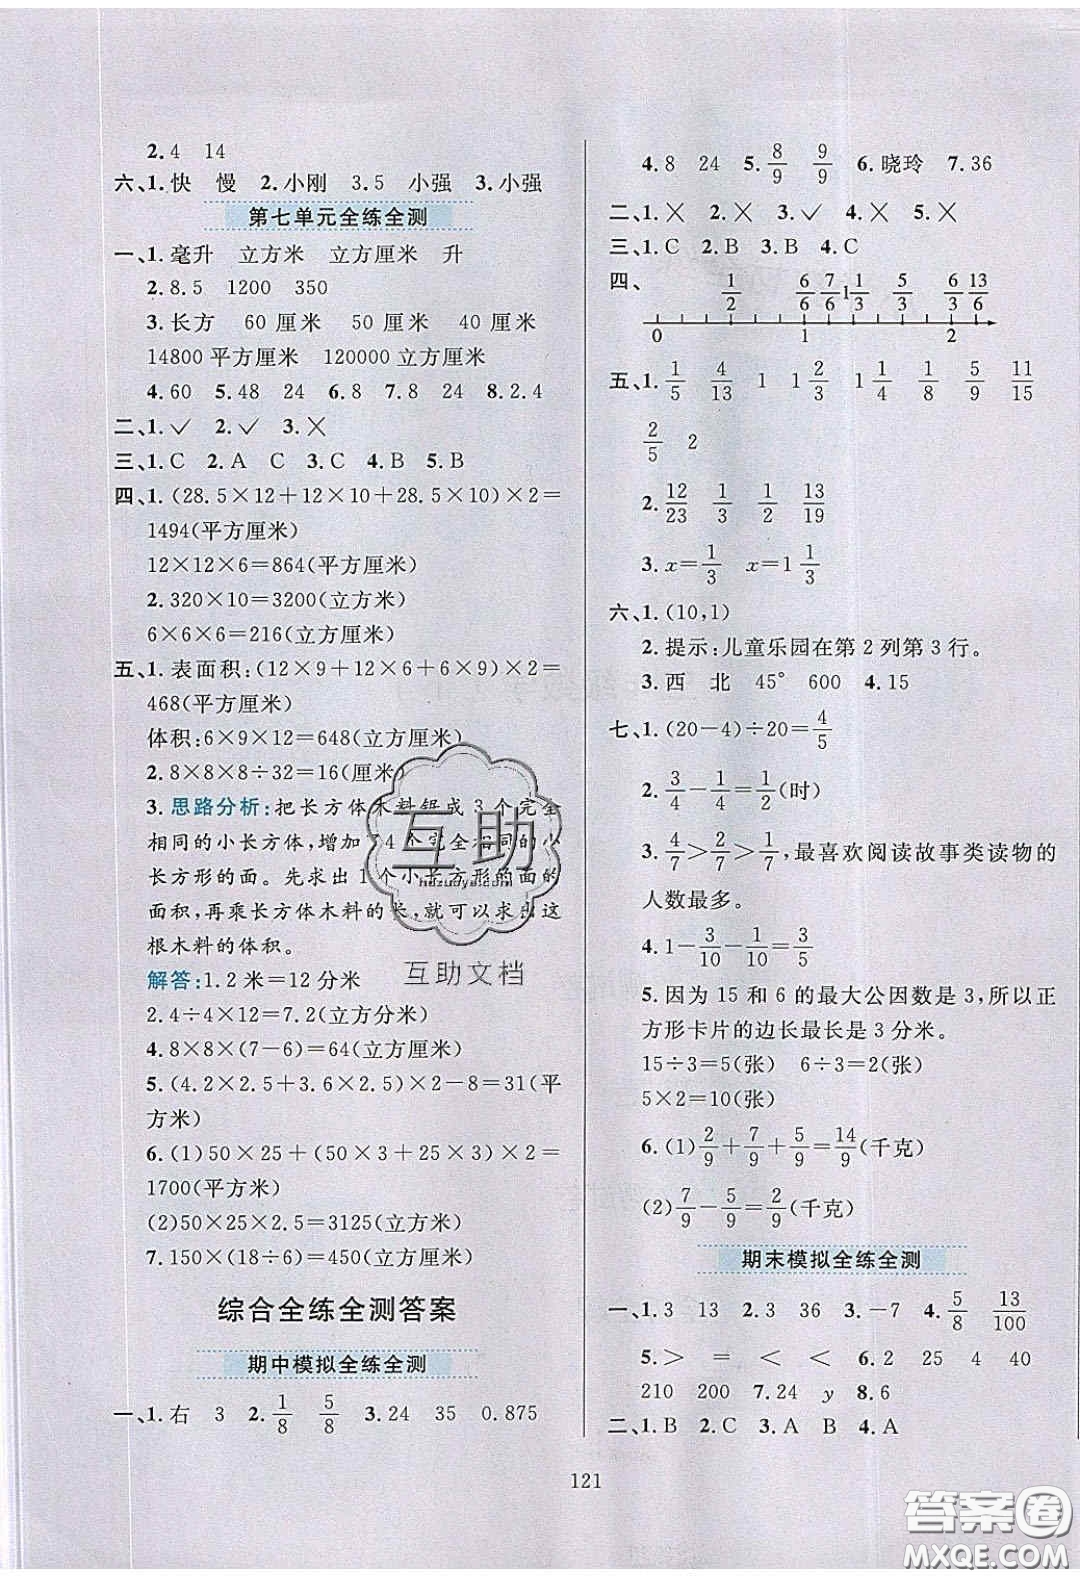 2.4 14
六、1.快 慢 2.小刚 3.5 小强 3.小强
第七单元全练全测
一、1.毫升 立方米 立方厘米 升
2.8.5 1200 350
3.长方 60厘米 50厘米 40厘米
14800平方厘米 120000立方厘米
4.60 5.48 24 6.8 7.8 24 8.2.4
二、1.✓ 2.✓ 3.×
三、1.C 2.A C 3.C 4.B 5.B
四、1.(28.5×12+12×10+28.5×10)×2=
1494(平方厘米)
12×12×6=864(平方厘米)
2.320×10=3200(立方米)
6×6×6=216(立方米)
五、1.表面积:(12×9+12×6+6×9)×2=
468(平方厘米)
体积:6×9×12=648(立方厘米)
2.8×8×8÷32=16(厘米)
3.思路分析:把长方体木料锯成3个完全
相同的小长方体,增加了4个完全相同的小
长方形的面。先求出1个小长方形的面的
面积,再乘长方体木料的长,就可以求出这
根木料的体积。
解答:1.2米=12分米
2.4÷4×12=7.2(立方分米)
4.8×8×(7-6)=64(立方厘米)
5.(4.2×2.5+3.6×2.5)×2-8=31(平
方米)
6.(1)50×25+(50×3+25×3)×2=
1700(平方米)
(2)50×25×2.5=3125(立方米)
7.150×(18÷6)=450(立方厘米)
综合全练全测答案
期中模拟全练全测
一、1.右 3 2.1/8 5/8 3.24 35 0.875
4.8 24 5.8/9 9/9 6.晓玲 7.36
二、1.× 2.× 3.✓ 4.× 5.×
三、1.C 2.B 3.B 4.C
四、1/2 6/6 7/6 1 1/3 5/3 6/3 13/6
0 1 2
五、1.1/5 4/13 1 1 2/3 1 1/4 1/8 5/9 11/15
2/5 2
2.12/23 1/3 1/2 13/19
3.x=1/3 x=1 1/3
六、1.(10,1)
2.提示:儿童乐园在第2列第3行。
3.西 北 45° 600 4.15
七、1.(20-4)÷20=4/5
2.3/4-1/4=1/2(时)
3.4/7>2/7>1/7,最喜欢阅读故事类读物的
人数最多。
4.1-3/10-1/10=3/5
5.因为15和6的最大公因数是3,所以正
方形卡片的边长最长是3分米。
15÷3=5(张) 6÷3=2(张)
5×2=10(张)
6.(1)2/9+7/9+5/9=14/9(千克)
(2)7/9-5/9=2/9(千克)
期末模拟全练全测
一、1.3 13 2.3 36 3.-7 4.5/8 13/100
5.> = < < 6.2 25 4 40
210 200 7.24 y 8.6
二、1.B 2.C 3.A B 4.A
121
互助
hezuoye.com
互助文档
答案圈
MXQE.COM